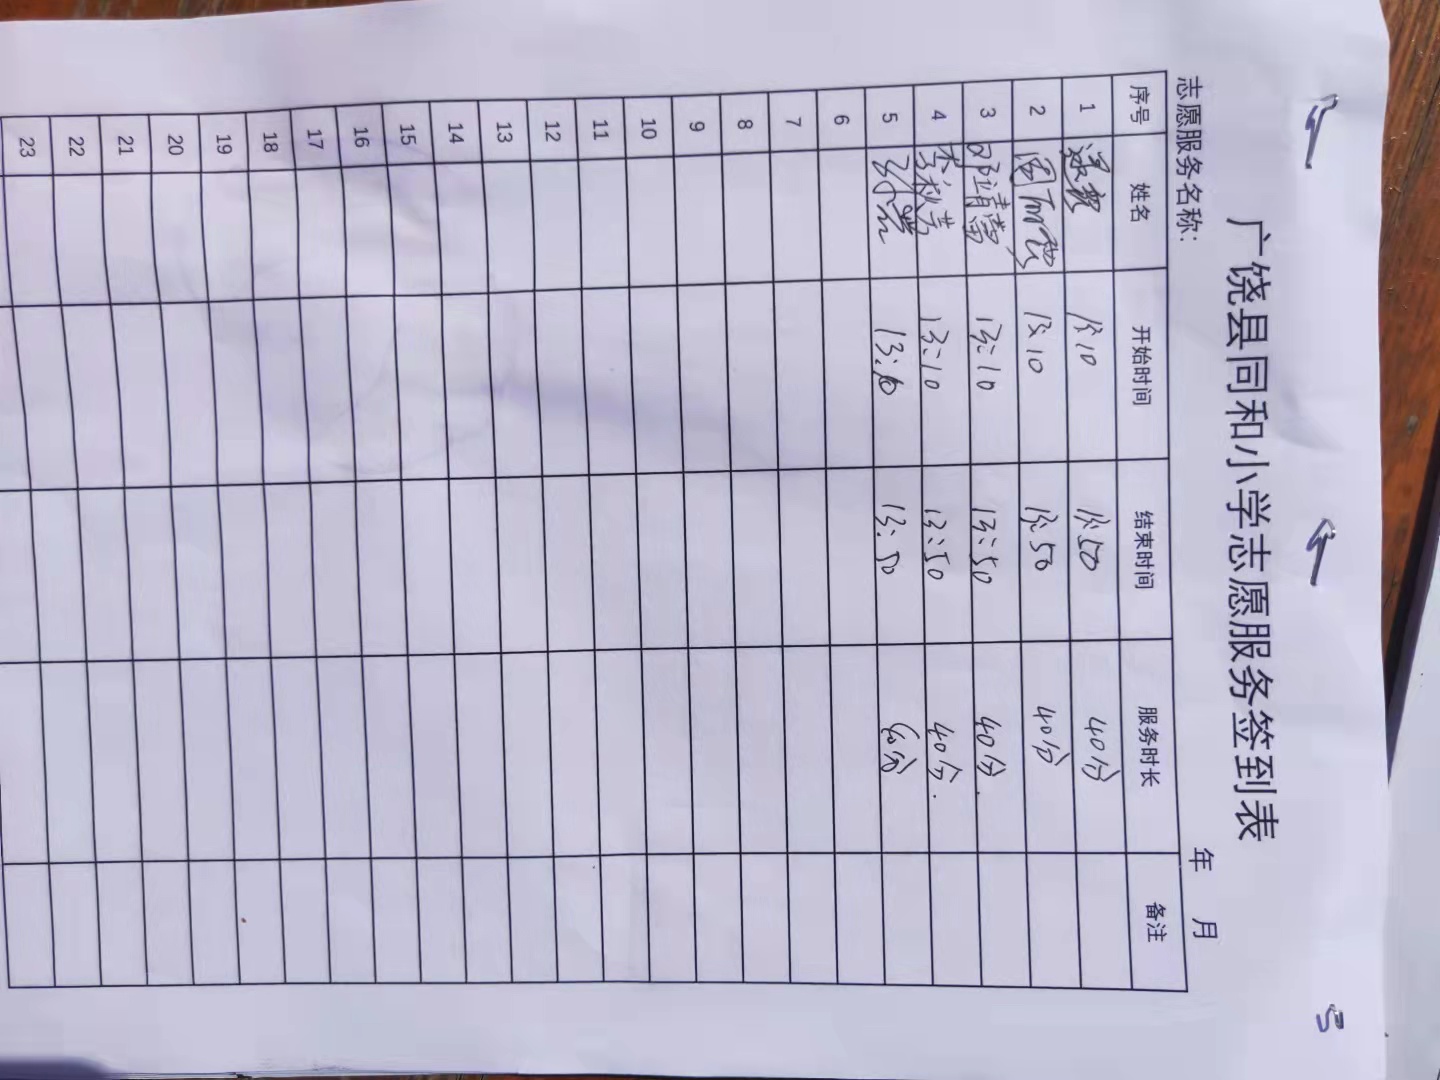 广饶县同和小学志愿服务签到表
志愿服务名称： 年 月
序号 姓名 开始时间 结束时间 服务时长 备注
1 13:10 13:50 40分
2 13:10 13:50 40分
3 邓靖雷 13:10 13:50 40分.
4 李秋芳 13:10 13:50 40分.
5 13:10 13:50 40分
6
7
8
9
10
11
12
13
14
15
16
17
18
19
20
21
22
23